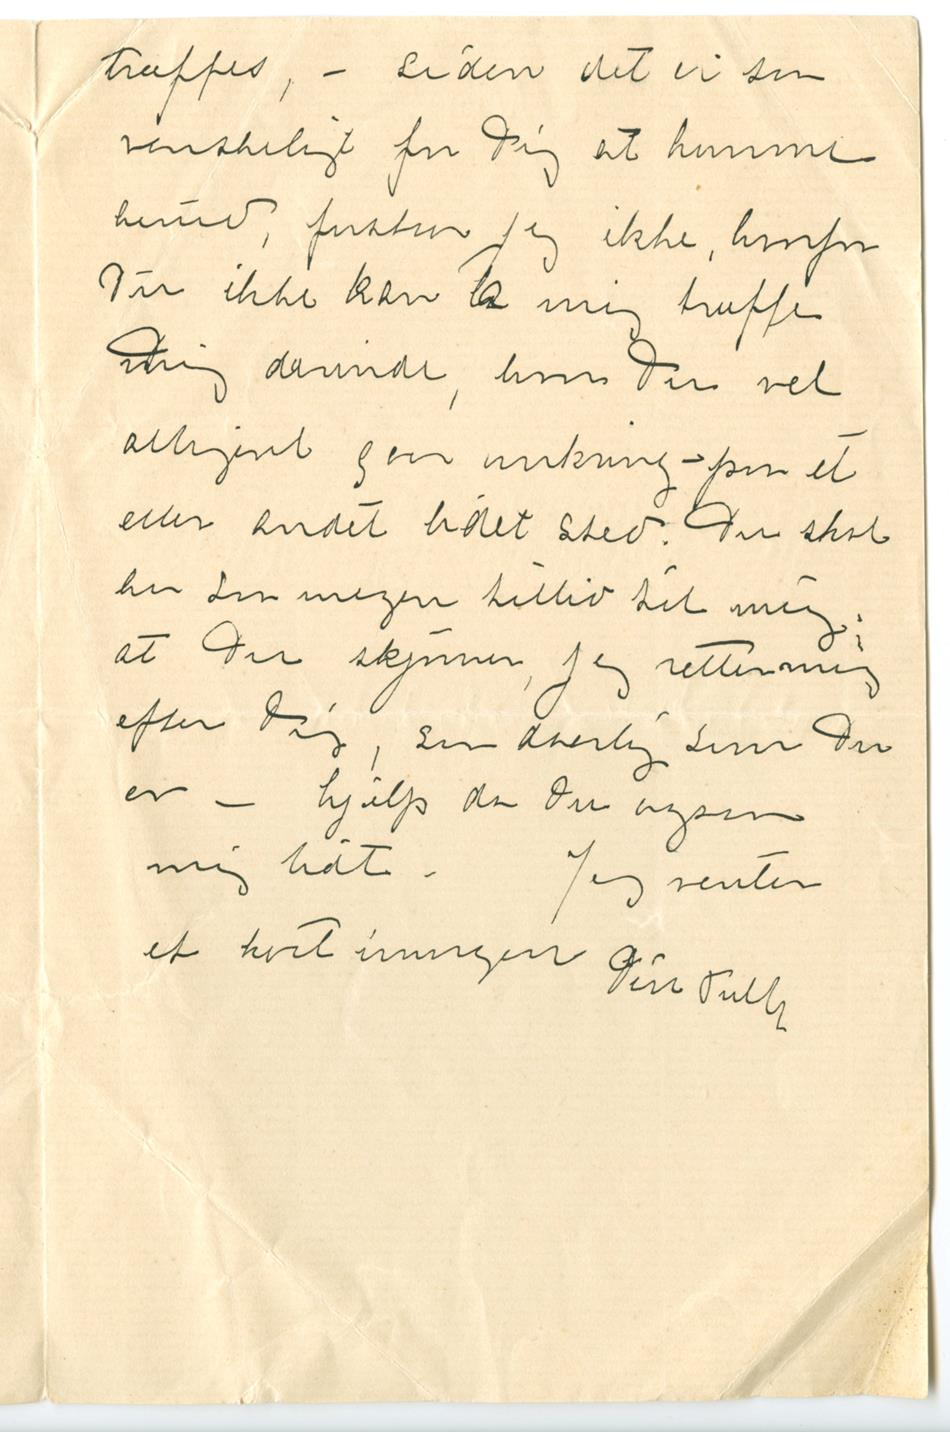 træffes, – siden det er saa
vanskeligt for Dig at komme
herud, forstaar jeg ikke, hvorfor
Du ikke kan la mig træffe
Dig derinde, hvor Du vel
allikevel gaar omkring paa et
eller andet lidet sted. Du skal
ha saa megen tillid til mig,
at Du skjønner, jeg retter mig
efter Dig, saa daarlig som Du
er – hjælp da Du ogsaa
mig lidt. – Jeg venter
et kort imorgen Din Tulla